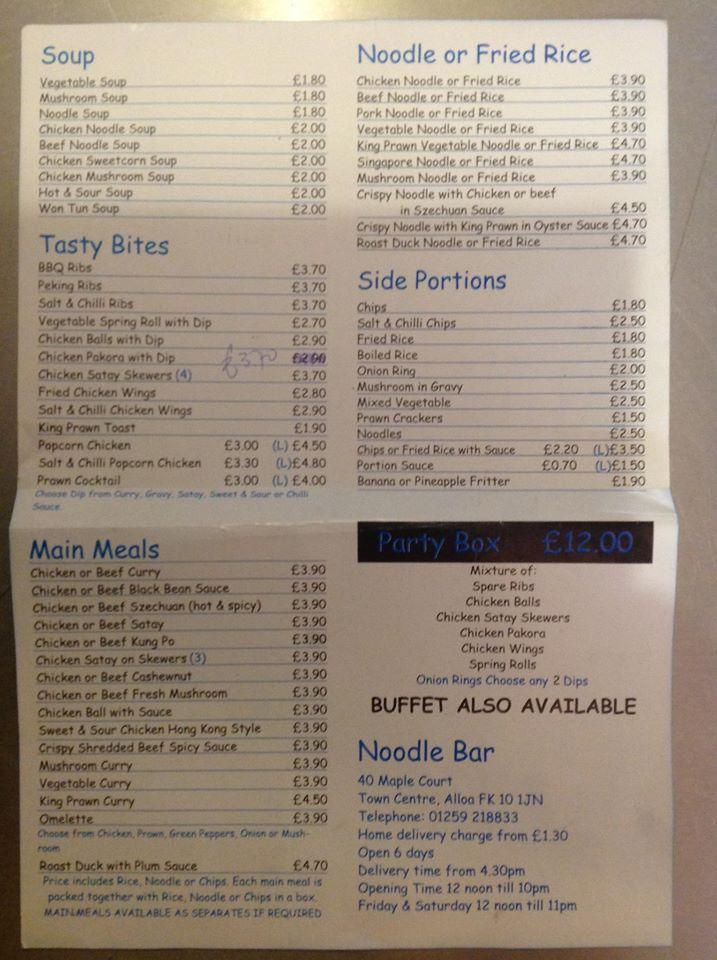 Soup
Vegetable Soup £1.80
Mushroom Soup £1.80
Noodle Soup £1.80
Chicken Noodle Soup £2.00
Beef Noodle Soup £2.00
Chicken Sweetcorn Soup £2.00
Chicken Mushroom Soup £2.00
Hot & Sour Soup £2.00
Won Tun Soup £2.00
Tasty Bites
BBQ Ribs £3.70
Peking Ribs £3.70
Salt & Chilli Ribs £3.70
Vegetable Spring Roll with Dip £2.70
Chicken Balls with Dip £2.90
Chicken Pakora with Dip £3.70 £2.90
Chicken Satay Skewers (4) £3.70
Fried Chicken Wings £2.80
Salt & Chilli Chicken Wings £2.90
King Prawn Toast £1.90
Popcorn Chicken £3.00 (L) £4.50
Salt & Chilli Popcorn Chicken £3.30 (L)£4.80
Prawn Cocktail £3.00 (L) £4.00
Choose Dip from Curry, Gravy, Satay, Sweet & Sour or Chilli
Sauce
Main Meals
Chicken or Beef Curry £3.90
Chicken or Beef Black Bean Sauce £3.90
Chicken or Beef Szechuan (hot & spicy) £3.90
Chicken or Beef Satay £3.90
Chicken or Beef Kung Po £3.90
Chicken Satay on Skewers (3) £3.90
Chicken or Beef Cashewnut £3.90
Chicken or Beef Fresh Mushroom £3.90
Chicken Ball with Sauce £3.90
Sweet & Sour Chicken Hong Kong Style £3.90
Crispy Shredded Beef Spicy Sauce £3.90
Mushroom Curry £3.90
Vegetable Curry £3.90
King Prawn Curry £4.50
Omelette £3.90
Choose from Chicken, Prawn, Green Peppers, Onion or Mush-
room
Roast Duck with Plum Sauce £4.70
Price includes Rice, Noodle or Chips. Each main meal is
packed together with Rice, Noodle or Chips in a box.
MAIN MEALS AVAILABLE AS SEPARATES IF REQUIRED
Noodle or Fried Rice
Chicken Noodle or Fried Rice £3.90
Beef Noodle or Fried Rice £3.90
Pork Noodle or Fried Rice £3.90
Vegetable Noodle or Fried Rice £3.90
King Prawn Vegetable Noodle or Fried Rice £4.70
Singapore Noodle or Fried Rice £4.70
Mushroom Noodle or Fried Rice £3.90
Crispy Noodle with Chicken or beef
in Szechuan Sauce £4.50
Crispy Noodle with King Prawn in Oyster Sauce £4.70
Roast Duck Noodle or Fried Rice £4.70
Side Portions
Chips £1.80
Salt & Chilli Chips £2.50
Fried Rice £1.80
Boiled Rice £1.80
Onion Ring £2.00
Mushroom in Gravy £2.50
Mixed Vegetable £2.50
Prawn Crackers £1.50
Noodles £2.50
Chips or Fried Rice with Sauce £2.20 (L)£3.50
Portion Sauce £0.70 (L)£1.50
Banana or Pineapple Fritter £1.90
Party Box £12.00
Mixture of:
Spare Ribs
Chicken Balls
Chicken Satay Skewers
Chicken Pakora
Chicken Wings
Spring Rolls
Onion Rings Choose any 2 Dips
BUFFET ALSO AVAILABLE
Noodle Bar
40 Maple Court
Town Centre, Alloa FK 10 1JN
Telephone: 01259 218833
Home delivery charge from £1.30
Open 6 days
Delivery time from 4.30pm
Opening Time 12 noon till 10pm
Friday & Saturday 12 noon till 11pm